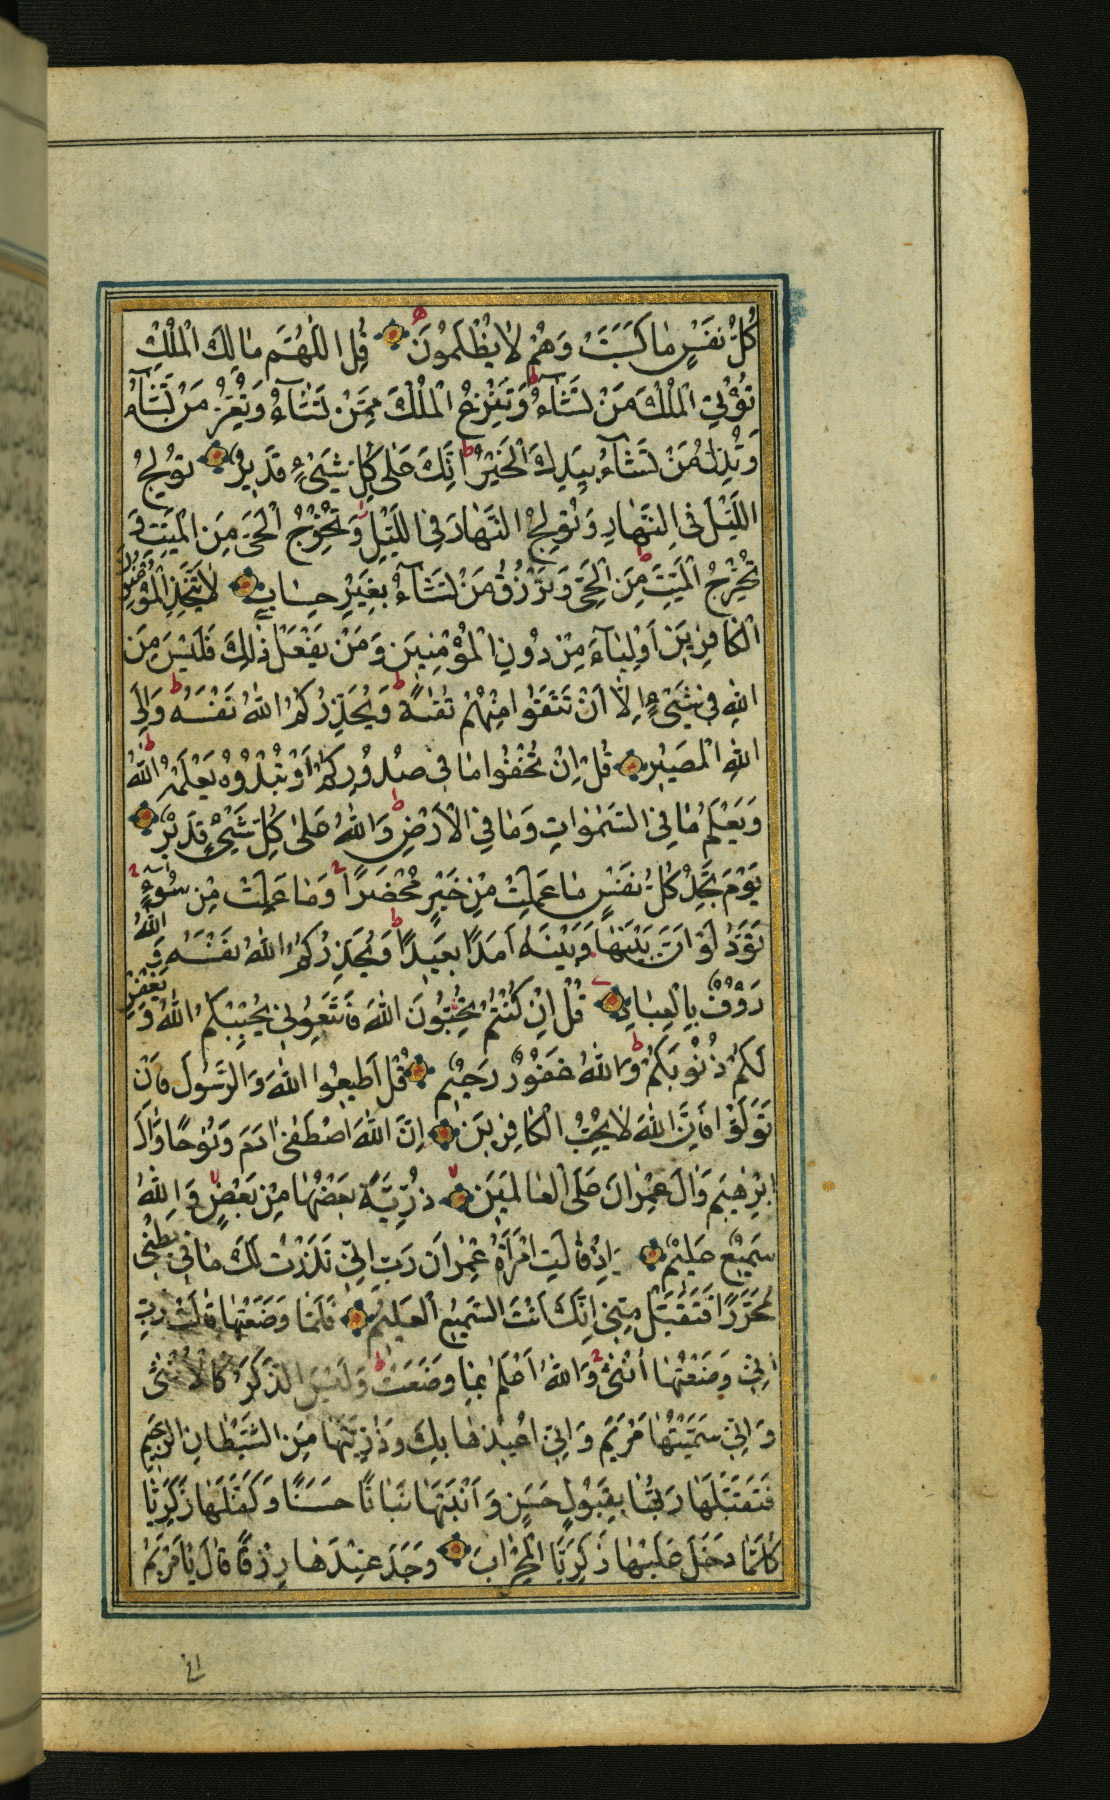 كُلُّ نَفْسٍ مَا كَسَبَتْ وَهُمْ لَا يُظْلَمُونَ قُلِ اللَّهُمَّ مَالِكَ الْمُلْكِ
تُؤْتِي الْمُلْكَ مَنْ تَشَآءُ وَتَنْزِعُ الْمُلْكَ مِمَّنْ تَشَآءُ وَتُعِزُّ مَنْ تَشَآءُ
وَتُذِلُّ مَنْ تَشَآءُ بِيَدِكَ الْخَيْرُ اِنَّكَ عَلَى كُلِّ شَيْءٍ قَدِيرٌ تُولِجُ
اللَّيْلَ فِي النَّهَارِ وَتُولِجُ النَّهَارَ فِي اللَّيْلِ وَتُخْرِجُ الْحَيَّ مِنَ الْمَيِّتِ وَ
تُخْرِجُ الْمَيِّتَ مِنَ الْحَيِّ وَتَرْزُقُ مَنْ تَشَآءُ بِغَيْرِ حِسَابٍ لَا يَتَّخِذِ الْمُؤْمِنُونَ
الْكَافِرِينَ اَوْلِيَآءَ مِنْ دُونِ الْمُؤْمِنِينَ وَمَنْ يَفْعَلْ ذٰلِكَ فَلَيْسَ مِنَ
اللهِ فِي شَيْءٍ اِلَّا اَنْ تَتَّقُوا مِنْهُمْ تُقٰىةً وَيُحَذِّرُكُمُ اللهُ نَفْسَهُ وَاِلَى
اللهِ الْمَصِيرُ قُلْ اِنْ تُخْفُوا مَا فِي صُدُورِكُمْ اَوْ تُبْدُوهُ يَعْلَمْهُ اللهُ
وَيَعْلَمُ مَا فِي السَّمٰوَاتِ وَمَا فِي الْاَرْضِ وَاللهُ عَلٰى كُلِّ شَيْءٍ قَدِيرٌ
يَوْمَ تَجِدُ كُلُّ نَفْسٍ مَا عَمِلَتْ مِنْ خَيْرٍ مُحْضَرًا وَمَا عَمِلَتْ مِنْ سُوٓءٍ
تَوَدُّ لَوْ اَنَّ بَيْنَهَا وَبَيْنَهُ اَمَدًا بَعِيدًا وَيُحَذِّرُكُمُ اللهُ نَفْسَهُ وَاللهُ
رَؤُفٌ بِالْعِبَادِ قُلْ اِنْ كُنْتُمْ تُحِبُّونَ اللهَ فَاتَّبِعُونِي يُحْبِبْكُمُ اللهُ وَيَغْفِرْ
لَكُمْ ذُنُوبَكُمْ وَاللهُ غَفُورٌ رَحِيمٌ قُلْ اَطِيعُوا اللهَ وَالرَّسُولَ فَاِنْ
تَوَلَّوْا فَاِنَّ اللهَ لَا يُحِبُّ الْكَافِرِينَ اِنَّ اللهَ اصْطَفٰى اٰدَمَ وَنُوحًا وَاٰلَ
اِبْرٰهِيمَ وَاٰلَ عِمْرَانَ عَلَى الْعَالَمِينَ ذُرِّيَّةً بَعْضُهَا مِنْ بَعْضٍ وَاللهُ
سَمِيعٌ عَلِيمٌ اِذْ قَالَتِ امْرَاَةُ عِمْرَانَ رَبِّ اِنِّي نَذَرْتُ لَكَ مَا فِي بَطْنِي
مُحَرَّرًا فَتَقَبَّلْ مِنِّي اِنَّكَ اَنْتَ السَّمِيعُ الْعَلِيمُ فَلَمَّا وَضَعَتْهَا قَالَتْ رَبِّ
اِنِّي وَضَعْتُهَا اُنْثٰى وَاللهُ اَعْلَمُ بِمَا وَضَعَتْ وَلَيْسَ الذَّكَرُ كَالْاُنْثٰى
وَاِنِّي سَمَّيْتُهَا مَرْيَمَ وَاِنِّي اُعِيذُهَا بِكَ وَذُرِّيَّتَهَا مِنَ الشَّيْطَانِ الرَّجِيمِ
فَتَقَبَّلَهَا رَبُّهَا بِقَبُولٍ حَسَنٍ وَاَنْبَتَهَا نَبَاتًا حَسَنًا وَكَفَّلَهَا زَكَرِيَّا
كُلَّمَا دَخَلَ عَلَيْهَا زَكَرِيَّا الْمِحْرَابَ وَجَدَ عِنْدَهَا رِزْقًا قَالَ يَا مَرْيَمُ